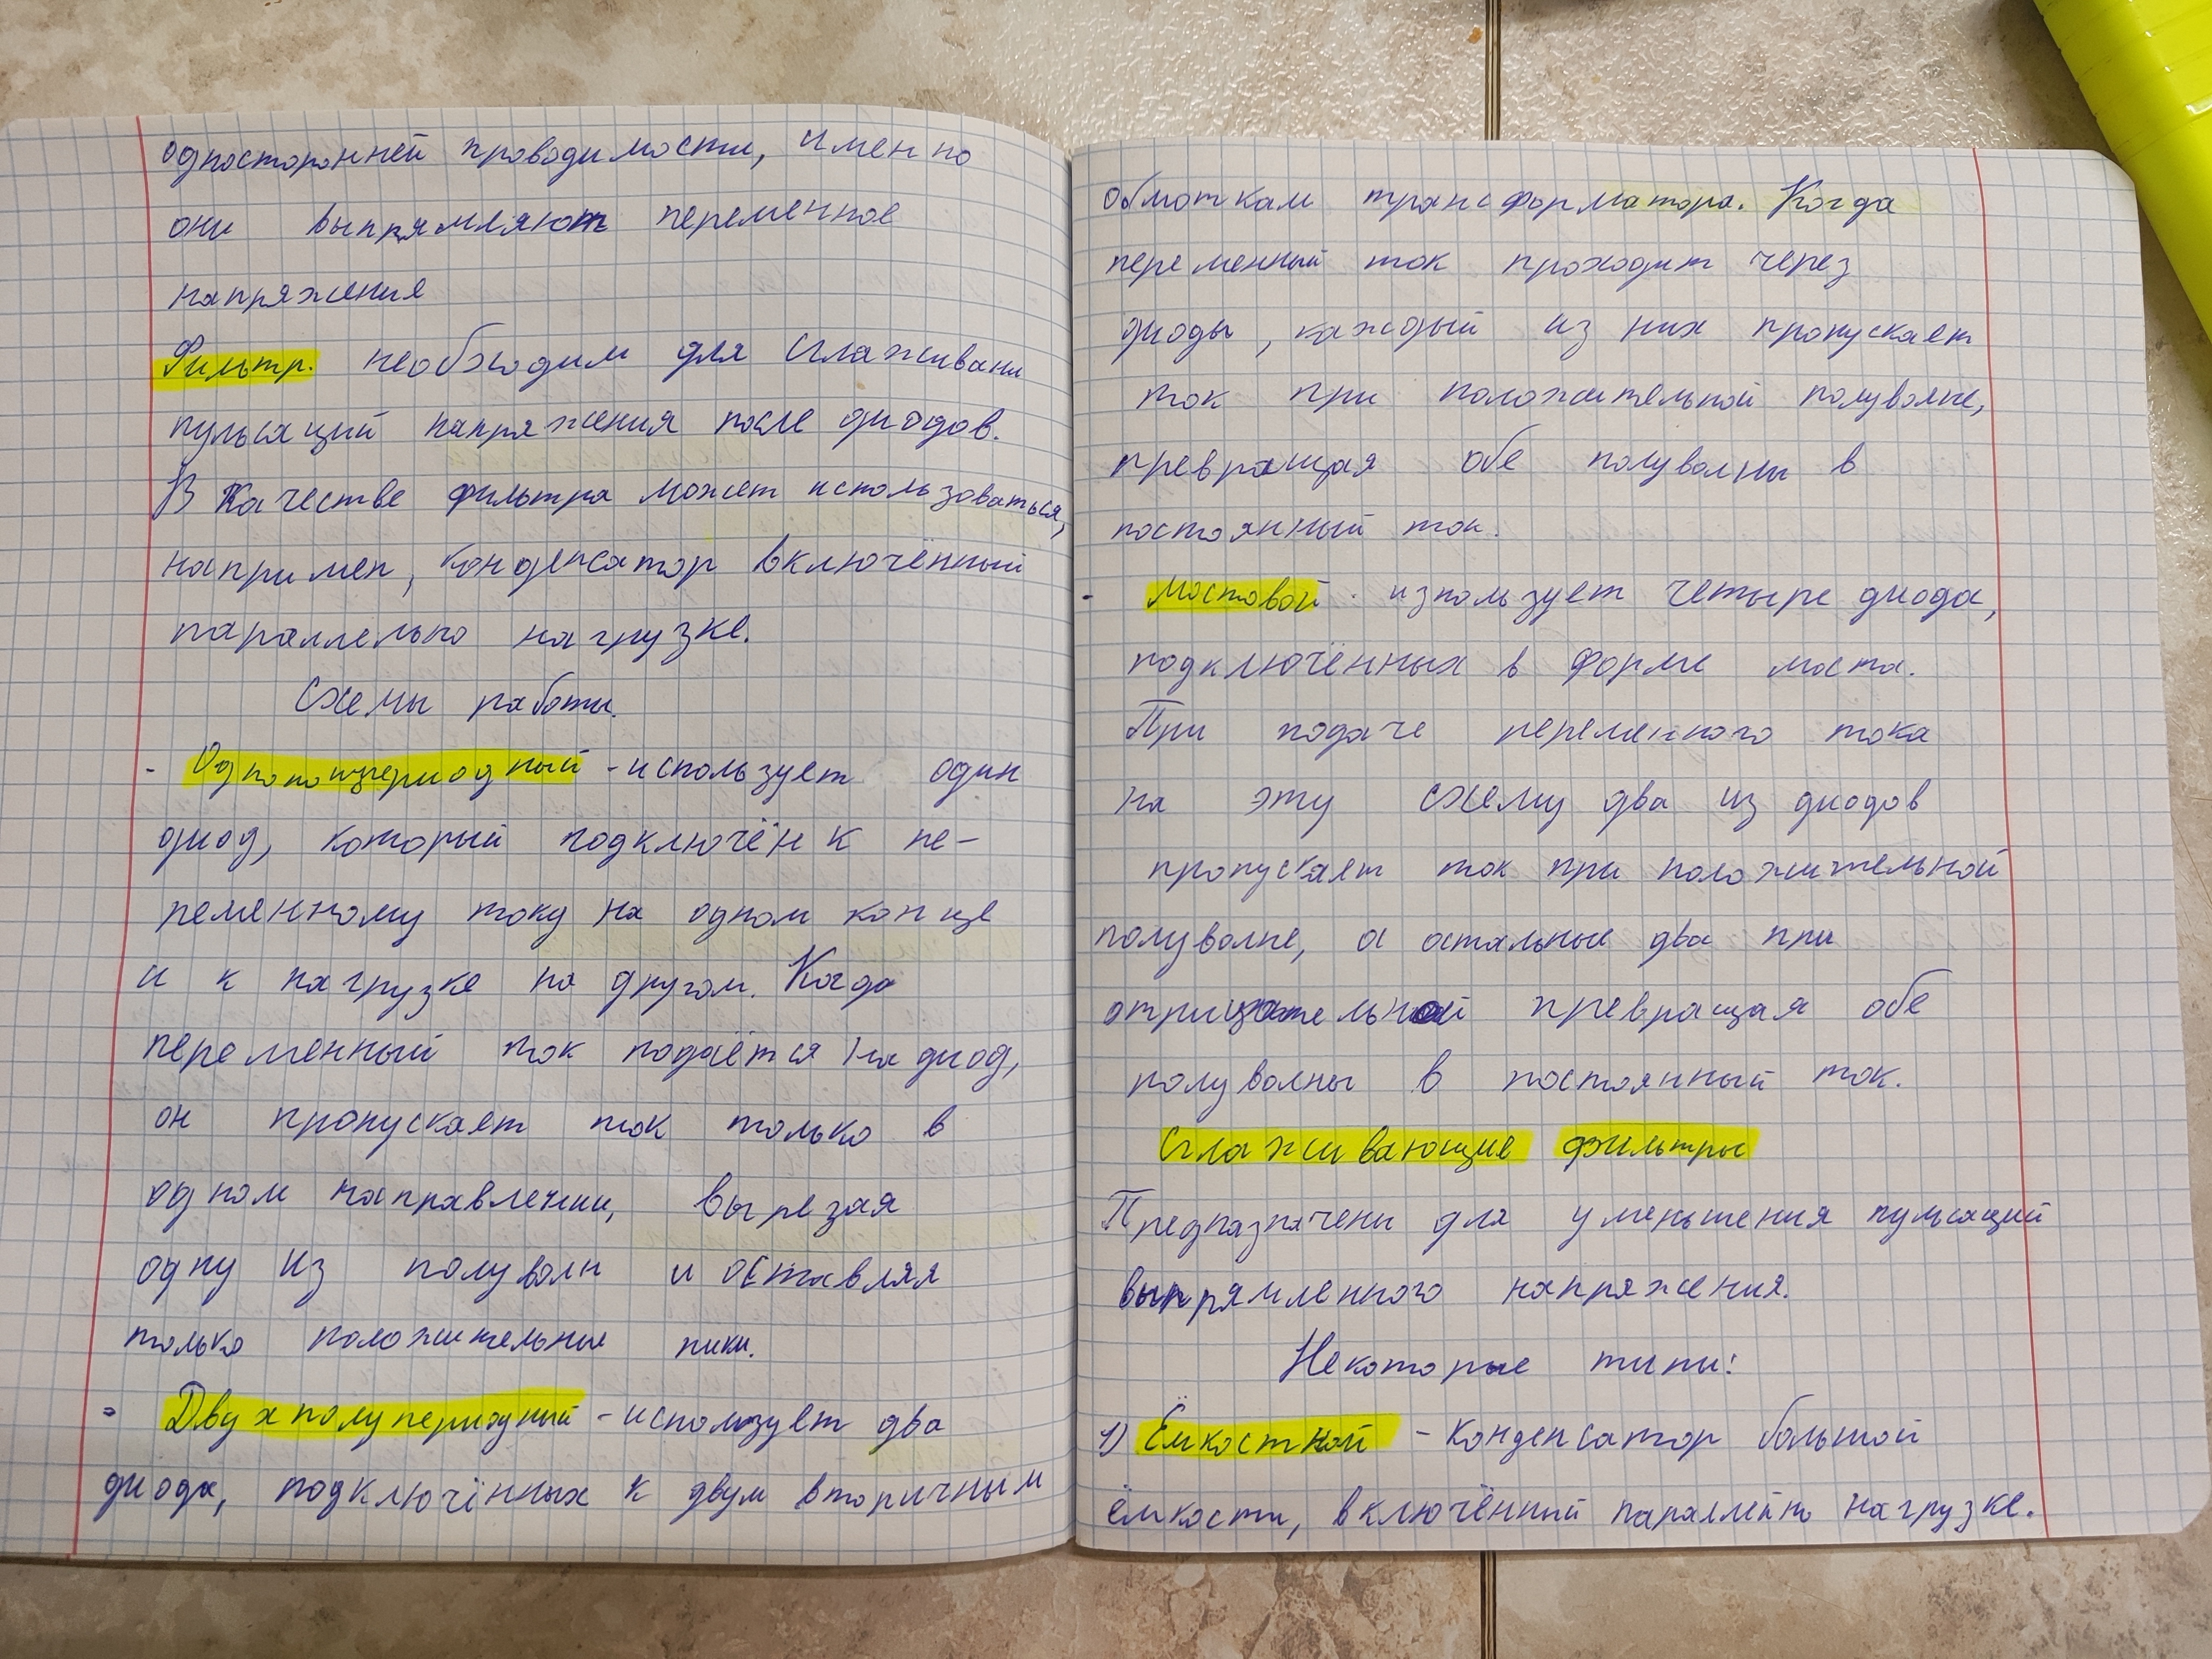 односторонней проводимости, именно
они выпрямляют переменное
напряжения
Фильтр. необходим для сглаживани
пульсаций напряжения после диодов.
В качестве фильтра может использоваться,
например, конденсатор включённый
параллельно нагрузке.
Схемы работы.
- Однополупериодный - использует один
диод, который подключён к пе-
ременному току на одном конце
и к нагрузке на другом. Когда
переменный ток подаётся на диод,
он пропускает ток только в
одном направлении, вырезая
одну из полуволн и оставляя
только положительные пики.
- Двухполупериодный - использует два
диода, подключённых к двум вторичным
обмоткам трансформатора. Когда
переменный ток проходит через
диоды, каждый из них пропускает
ток при положительной полуволне,
превращая обе полуволны в
постоянный ток.
- Мостовой - изпользует четыре диода,
подключённых в форме моста.
При подаче переменного тока
на эту схему два из диодов
пропускает ток при положительной
полуволне, а остальные два при
отрицательной превращая обе
полуволны в постоянный ток.
Сглаживающие фильтры
Предназначены для уменьшения пульсаций
выпрямленного напряжения.
Некоторые типы:
1) Ёмкостной - конденсатор большой
ёмкости, включённый параллельно нагрузке.